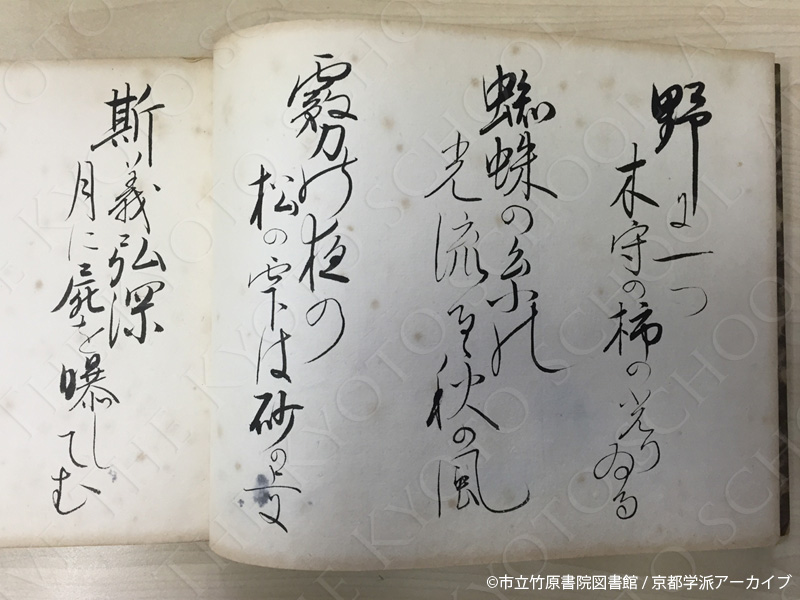 野に一つ
木守の柿の光りゐる
蜘蛛の糸の
光流るゝ秋の風
霧の夜の
松の雫は砂の上に
斯 義弘
月に屍を曝してむ
©市立竹原書院図書館 / 京都学派アーカイブ